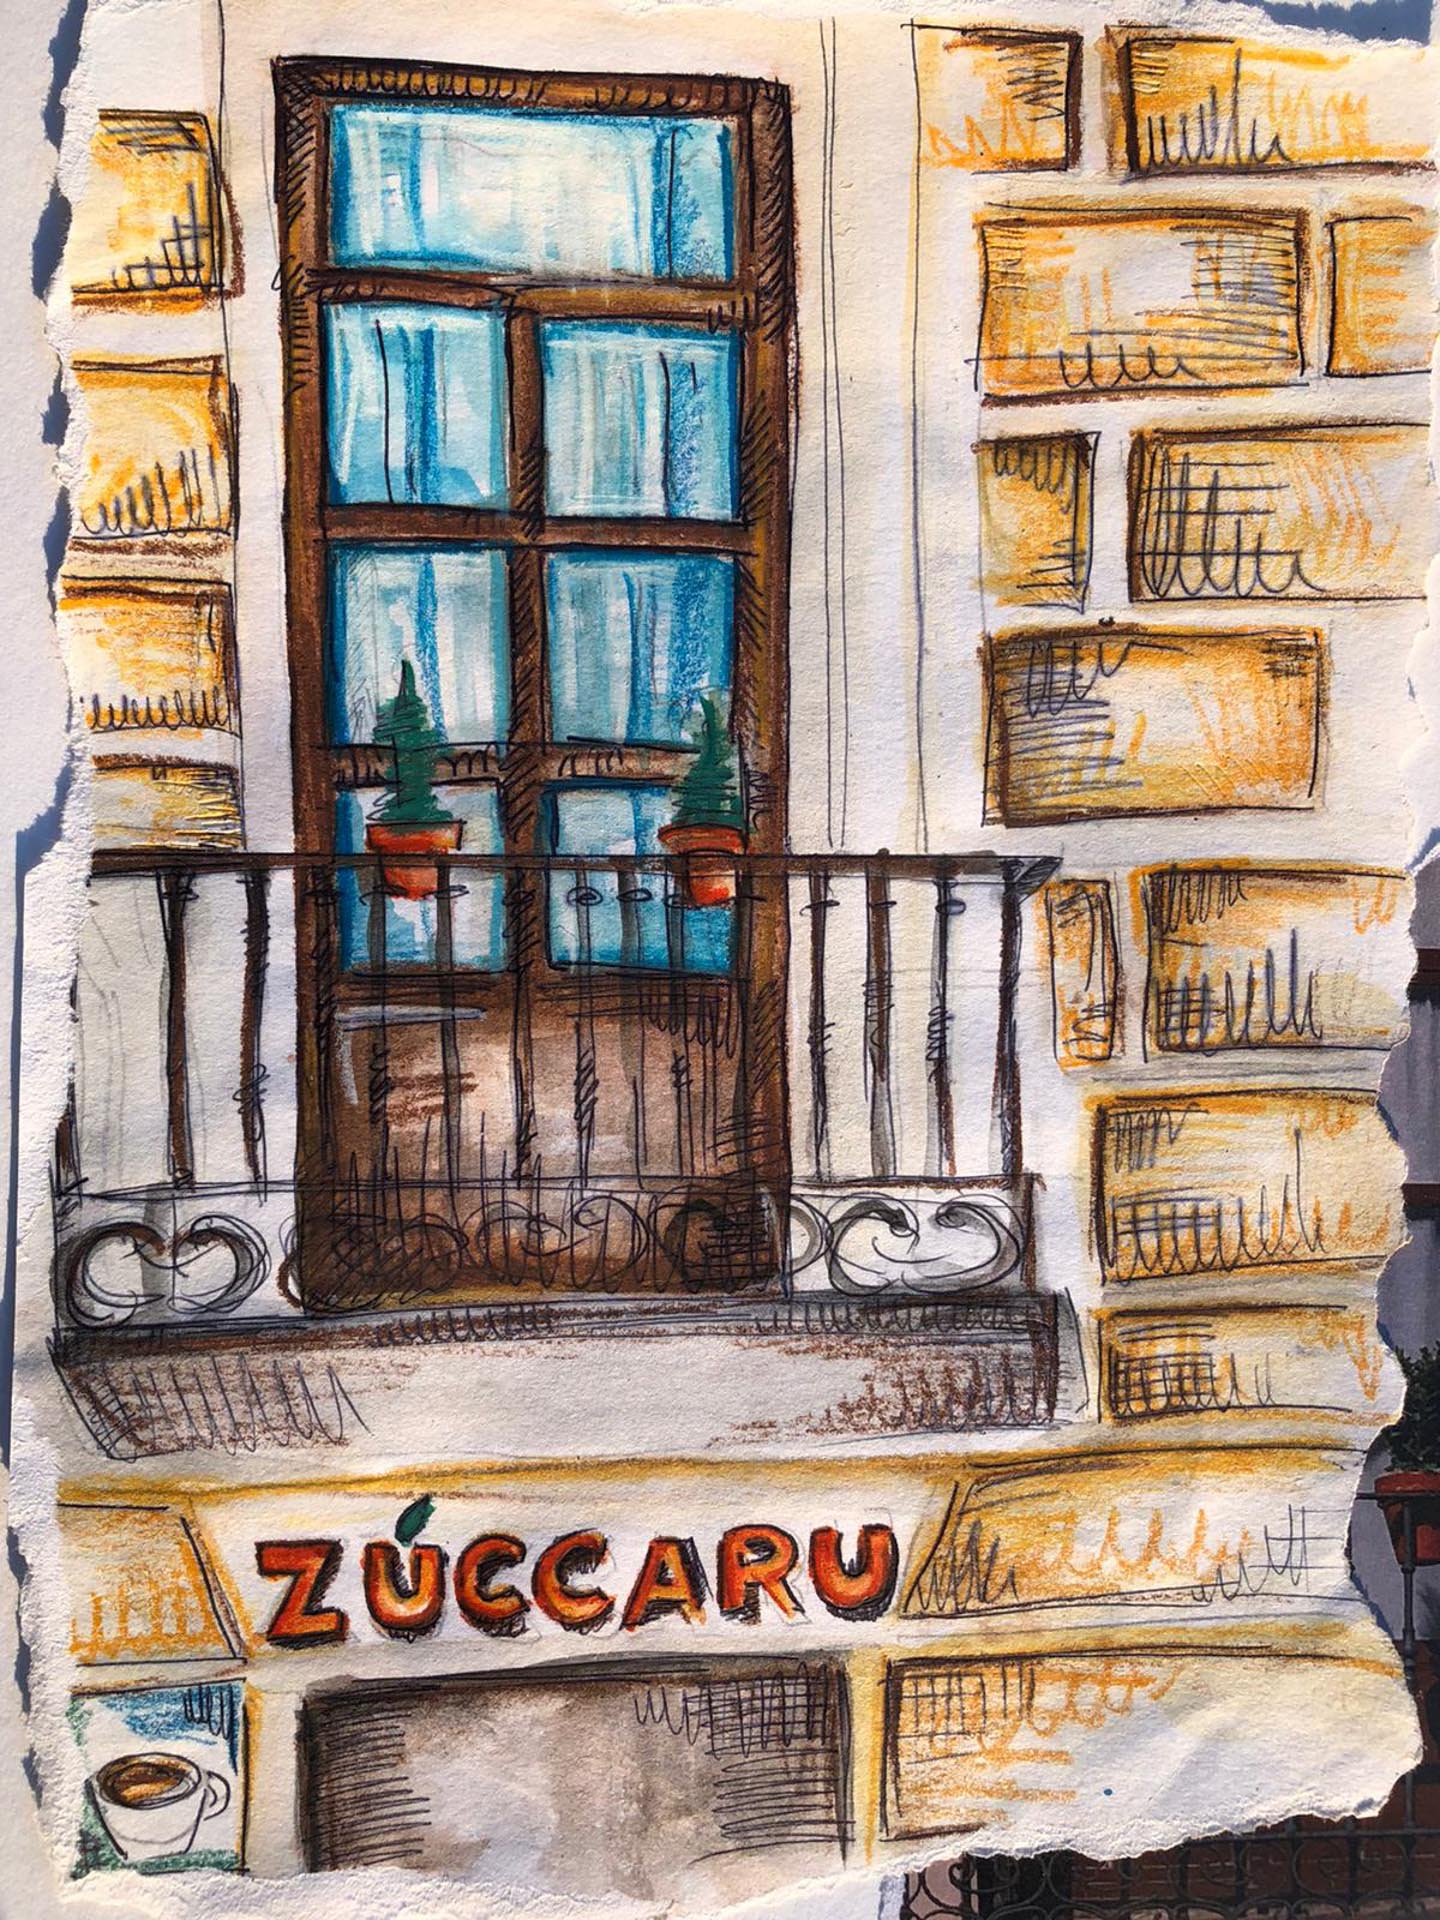 ZÚCCARU